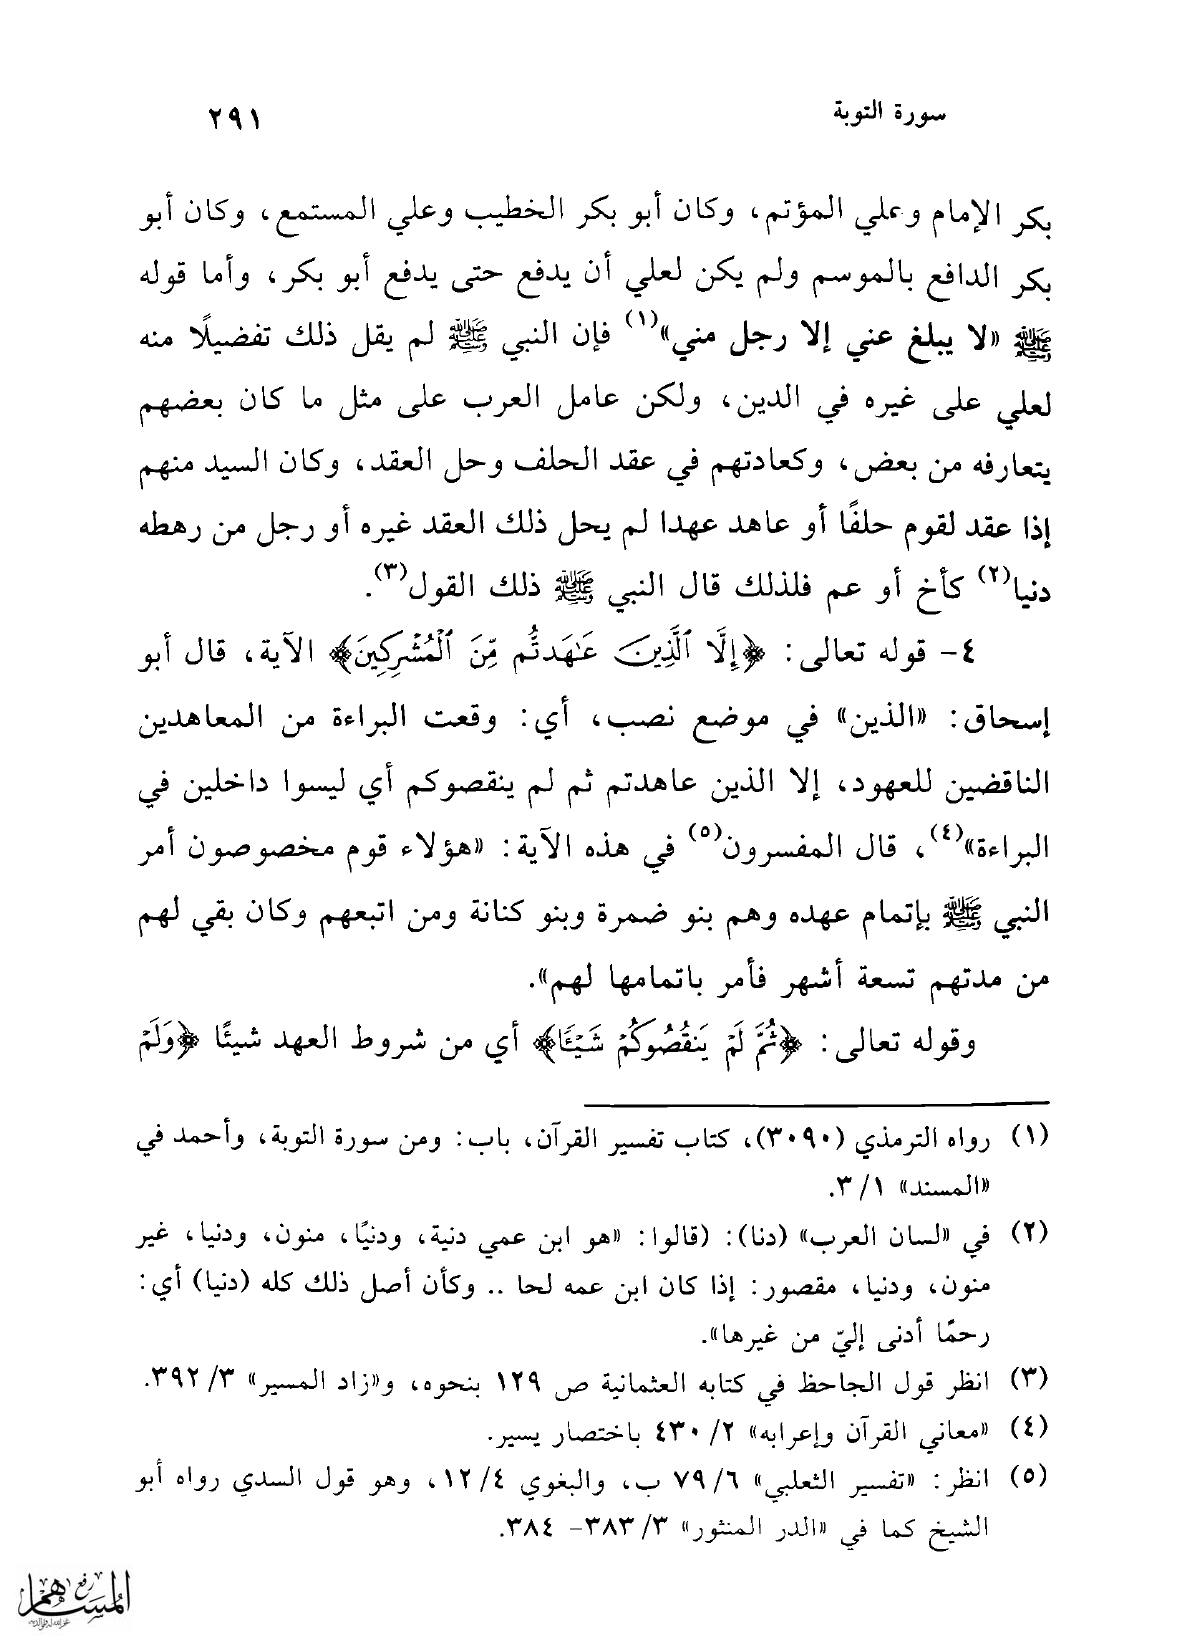 سورة التوبة ٢٩١
بكر الإمام وعلي المؤتم، وكان أبو بكر الخطيب وعلي المستمع، وكان أبو
بكر الدافع بالموسم ولم يكن لعلي أن يدفع حتى يدفع أبو بكر، وأما قوله
ﷺ «لا يبلغ عني إلا رجل مني»(١) فإن النبي ﷺ لم يقل ذلك تفضيلًا منه
لعلي على غيره في الدين، ولكن عامل العرب على مثل ما كان بعضهم
يتعارفه من بعض، وكعادتهم في عقد الحلف وحل العقد، وكان السيد منهم
إذا عقد لقوم حلفًا أو عاهد عهدا لم يحل ذلك العقد غيره أو رجل من رهطه
دنيا(٢) كأخ أو عم فلذلك قال النبي ﷺ ذلك القول(٣).
٤- قوله تعالى: ﴿إِلَّا ٱلَّذِينَ عَٰهَدتُّم مِّنَ ٱلْمُشْرِكِينَ﴾ الآية، قال أبو
إسحاق: «الذين» في موضع نصب، أي: وقعت البراءة من المعاهدين
الناقضين للعهود، إلا الذين عاهدتم ثم لم ينقصوكم أي ليسوا داخلين في
البراءة»(٤)، قال المفسرون(٥) في هذه الآية: «هؤلاء قوم مخصوصون أمر
النبي ﷺ بإتمام عهده وهم بنو ضمرة وبنو كنانة ومن اتبعهم وكان بقي لهم
من مدتهم تسعة أشهر فأمر باتمامها لهم».
وقوله تعالى: ﴿ثُمَّ لَمْ يَنقُصُوكُمْ شَيْـًٔا﴾ أي من شروط العهد شيئًا ﴿وَلَمْ
(١) رواه الترمذي (٣٠٩٠)، كتاب تفسير القرآن، باب: ومن سورة التوبة، وأحمد في
«المسند» ٣/١.
(٢) في «لسان العرب» (دنا): (قالوا: «هو ابن عمي دنية، ودنيًا، منون، ودنيا، غير
منون، ودنيا، مقصور: إذا كان ابن عمه لحا .. وكأن أصل ذلك كله (دنيا) أي:
رحمًا أدنى إليّ من غيرها».
(٣) انظر قول الجاحظ في كتابه العثمانية ص ١٢٩ بنحوه، و«زاد المسير» ٣٩٢/٣.
(٤) «معاني القرآن وإعرابه» ٤٣٠/٢ باختصار يسير.
(٥) انظر: «تفسير الثعلبي» ٧٩/٦ ب، والبغوي ١٢/٤، وهو قول السدي رواه أبو
الشيخ كما في «الدر المنثور» ٣٨٣/٣- ٣٨٤.